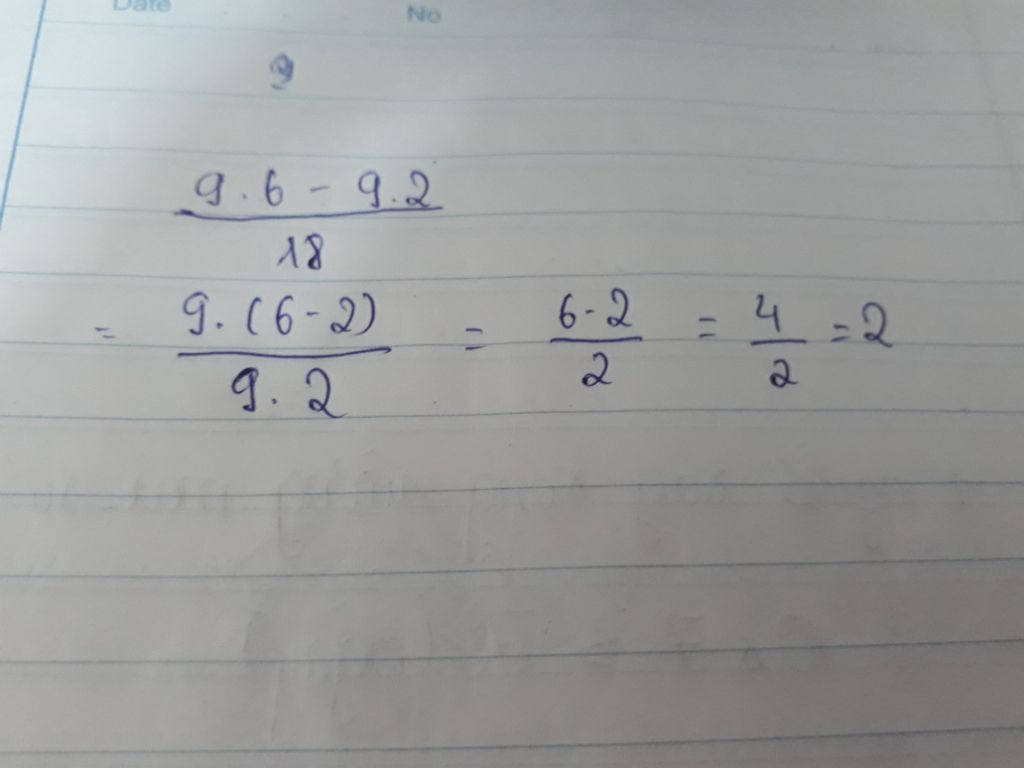 Date No
9
9.6 - 9.2
18
= 9.(6-2) / 9.2 = 6-2 / 2 = 4 / 2 = 2